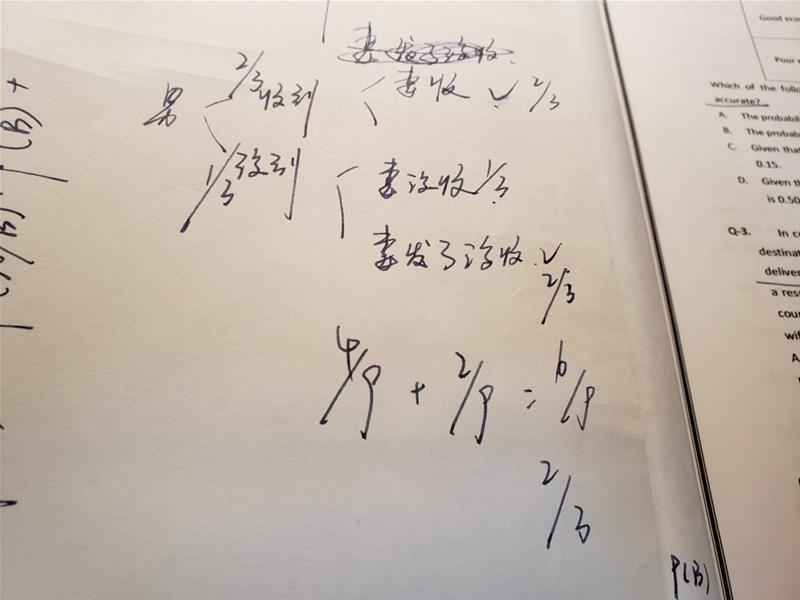 2/3
男 收到 妻收 ✓ 2/3
1/3 没到 妻没收 1/3
妻发了没收 ✓
2/3
4/9 + 2/9 = 6/9
2/3
P(B)
(B) +
Good eco
Poor
Which of the follo
accurate?
A. The probabili
B. The probab
C. Given that
0.15.
D. Given th
is 0.50
Q-3. In co
destinat
deliver
a res
cour
wif
A